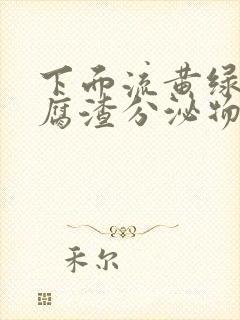 下而流黄绿
腐渣分泌物
禾尔